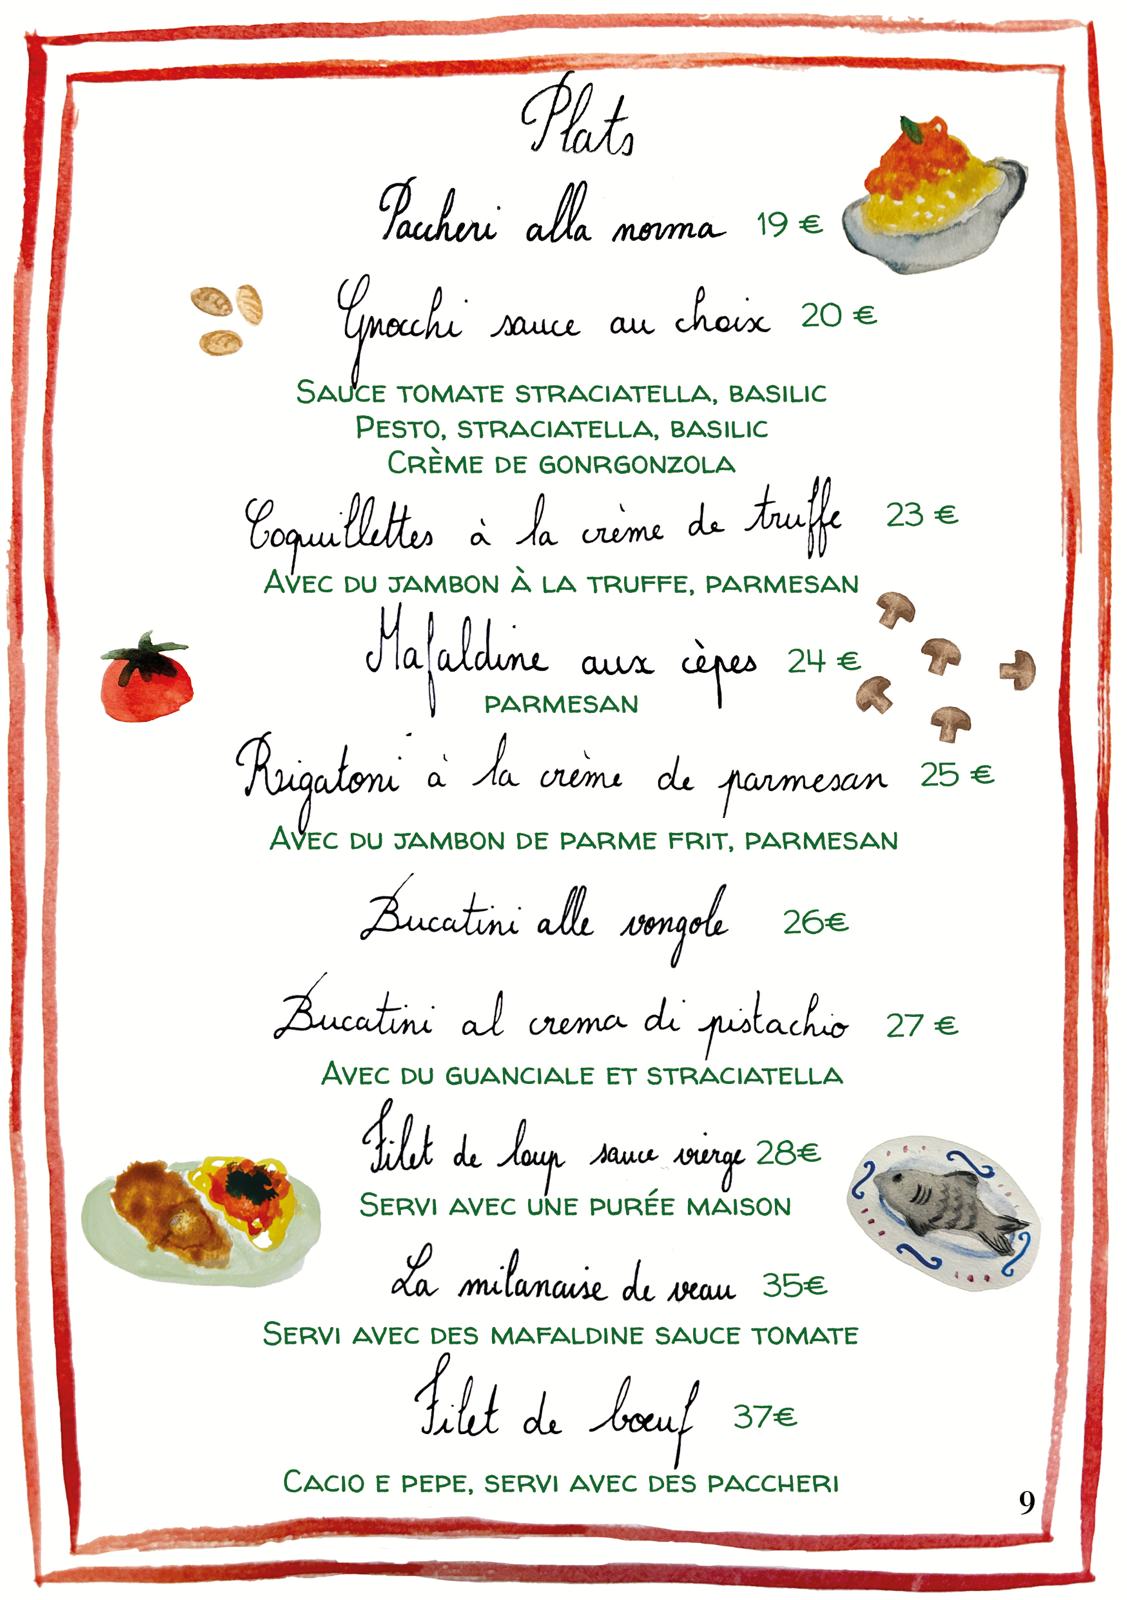 Plats
Paccheri alla norma 19 €
Gnocchi sauce au choix 20 €
SAUCE TOMATE STRACIATELLA, BASILIC
PESTO, STRACIATELLA, BASILIC
CRÈME DE GONRGONZOLA
Coquillettes à la crème de truffe 23 €
AVEC DU JAMBON À LA TRUFFE, PARMESAN
Mafaldine aux cèpes 24 €
PARMESAN
Rigatoni à la crème de parmesan 25 €
AVEC DU JAMBON DE PARME FRIT, PARMESAN
Bucatini alle vongole 26€
Bucatini al crema di pistachio 27 €
AVEC DU GUANCIALE ET STRACIATELLA
Filet de loup sauce vierge 28€
SERVI AVEC UNE PURÉE MAISON
La milanaise de veau 35€
SERVI AVEC DES MAFALDINE SAUCE TOMATE
Filet de bœuf 37€
CACIO E PEPE, SERVI AVEC DES PACCHERI
9